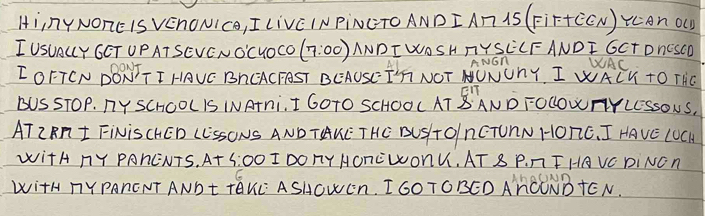 HI, MY NOME IS VERONICA, I LIVE IN PINETO AND I AM 15 (FIFTEEN) YEAR OLD
I USUALLY GET UP AT SEVEN O'CLOCO (7:00) AND I WASH MYSELF AND I GET DRESED
I OFTEN DON'T I HAVE BREACFAST BEAUSE I'M NOT HUNGRY. I WALK TO THE
BUS STOP. MY SCHOOL IS IN ATRI. I GO TO SCHOOL AT 8 AND FOLLOW MY LESSONS.
AT 2 PM I FINISCHED LESSONS AND TAKE THE BUS/TO/RETURN HOME. I HAVE LUCH
WITH MY PARENTS. AT 4:00 I DO MY HOMEWORK. AT 8 P.M I HAVE DINER
WITH MY PARENT AND I TAKE A SHOWER. I GO TO BED AROUND TEN.